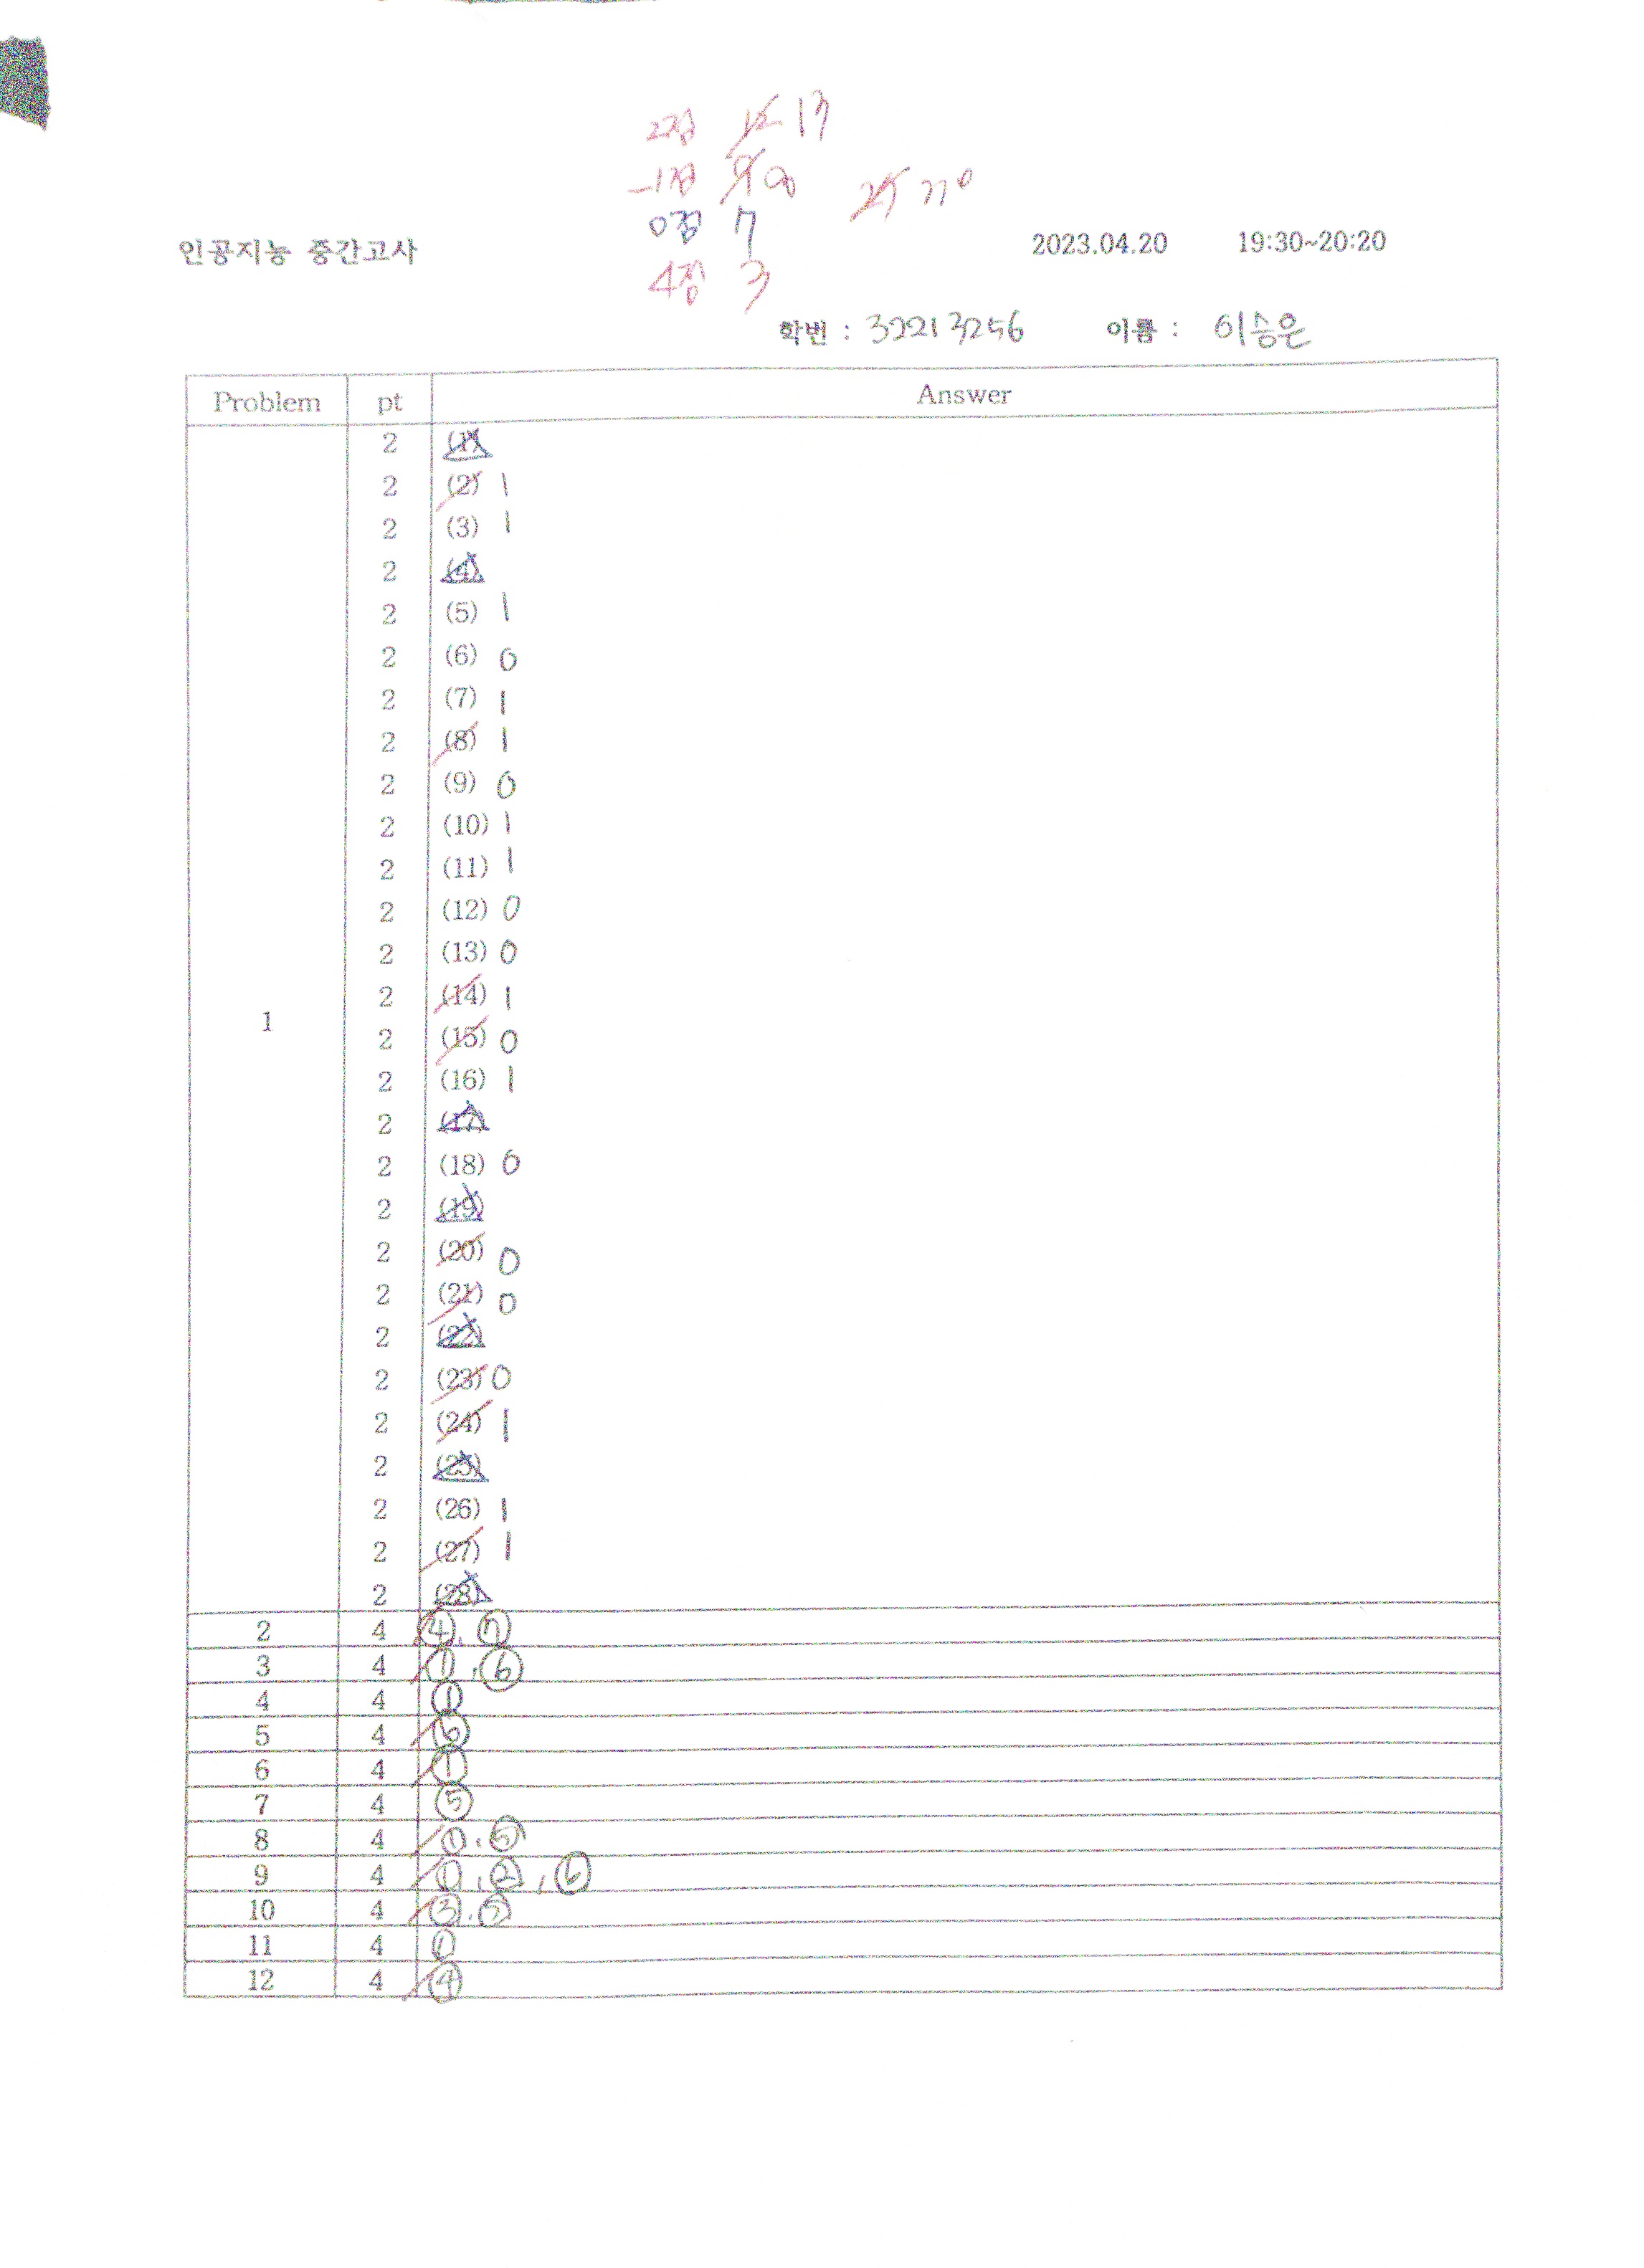 2점 12 13
-1점 9 8 25 770
0점 7
인공지능 중간고사 2023.04.20 19:30~20:20
4점 3
학번 : 32213256 이름 : 이승은
Problem pt Answer
2 (1)
2 (2) 1
2 (3) 1
2 (4)
2 (5) 1
2 (6) 0
2 (7) 1
2 (8) 1
2 (9) 0
2 (10) 1
2 (11) 1
2 (12) 0
2 (13) 0
2 (14) 1
1
2 (15) 0
2 (16) 1
2 (17)
2 (18) 0
2 (19)
2 (20) 0
2 (21) 0
2 (22)
2 (23) 0
2 (24) 1
2 (25)
2 (26) 1
2 (27) 1
2 (28)
2 4 ④, ⑦
3 4 ①, ⑥
4 4 ①
5 4 ⑥
6 4 ①
7 4 ⑤
8 4 ①, ⑤
9 4 ①, ②, ⑥
10 4 ③, ⑤
11 4 ①
12 4 ④